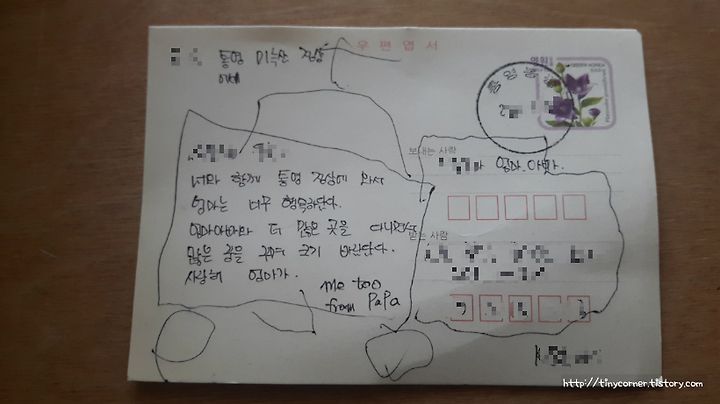 우편엽서
통영 미륵산 정상
에서
너와 함께 통영 정상에 와서
엄마는 너무 행복하단다.
엄마아빠와 더 많은 곳을 다니면서
많은 꿈을 꾸며 크기 바란단다.
사랑해 엄마가.
me too
from PaPa
보내는 사람
엄마.아빠.
받는 사람
http://tinycorner.tistory.com